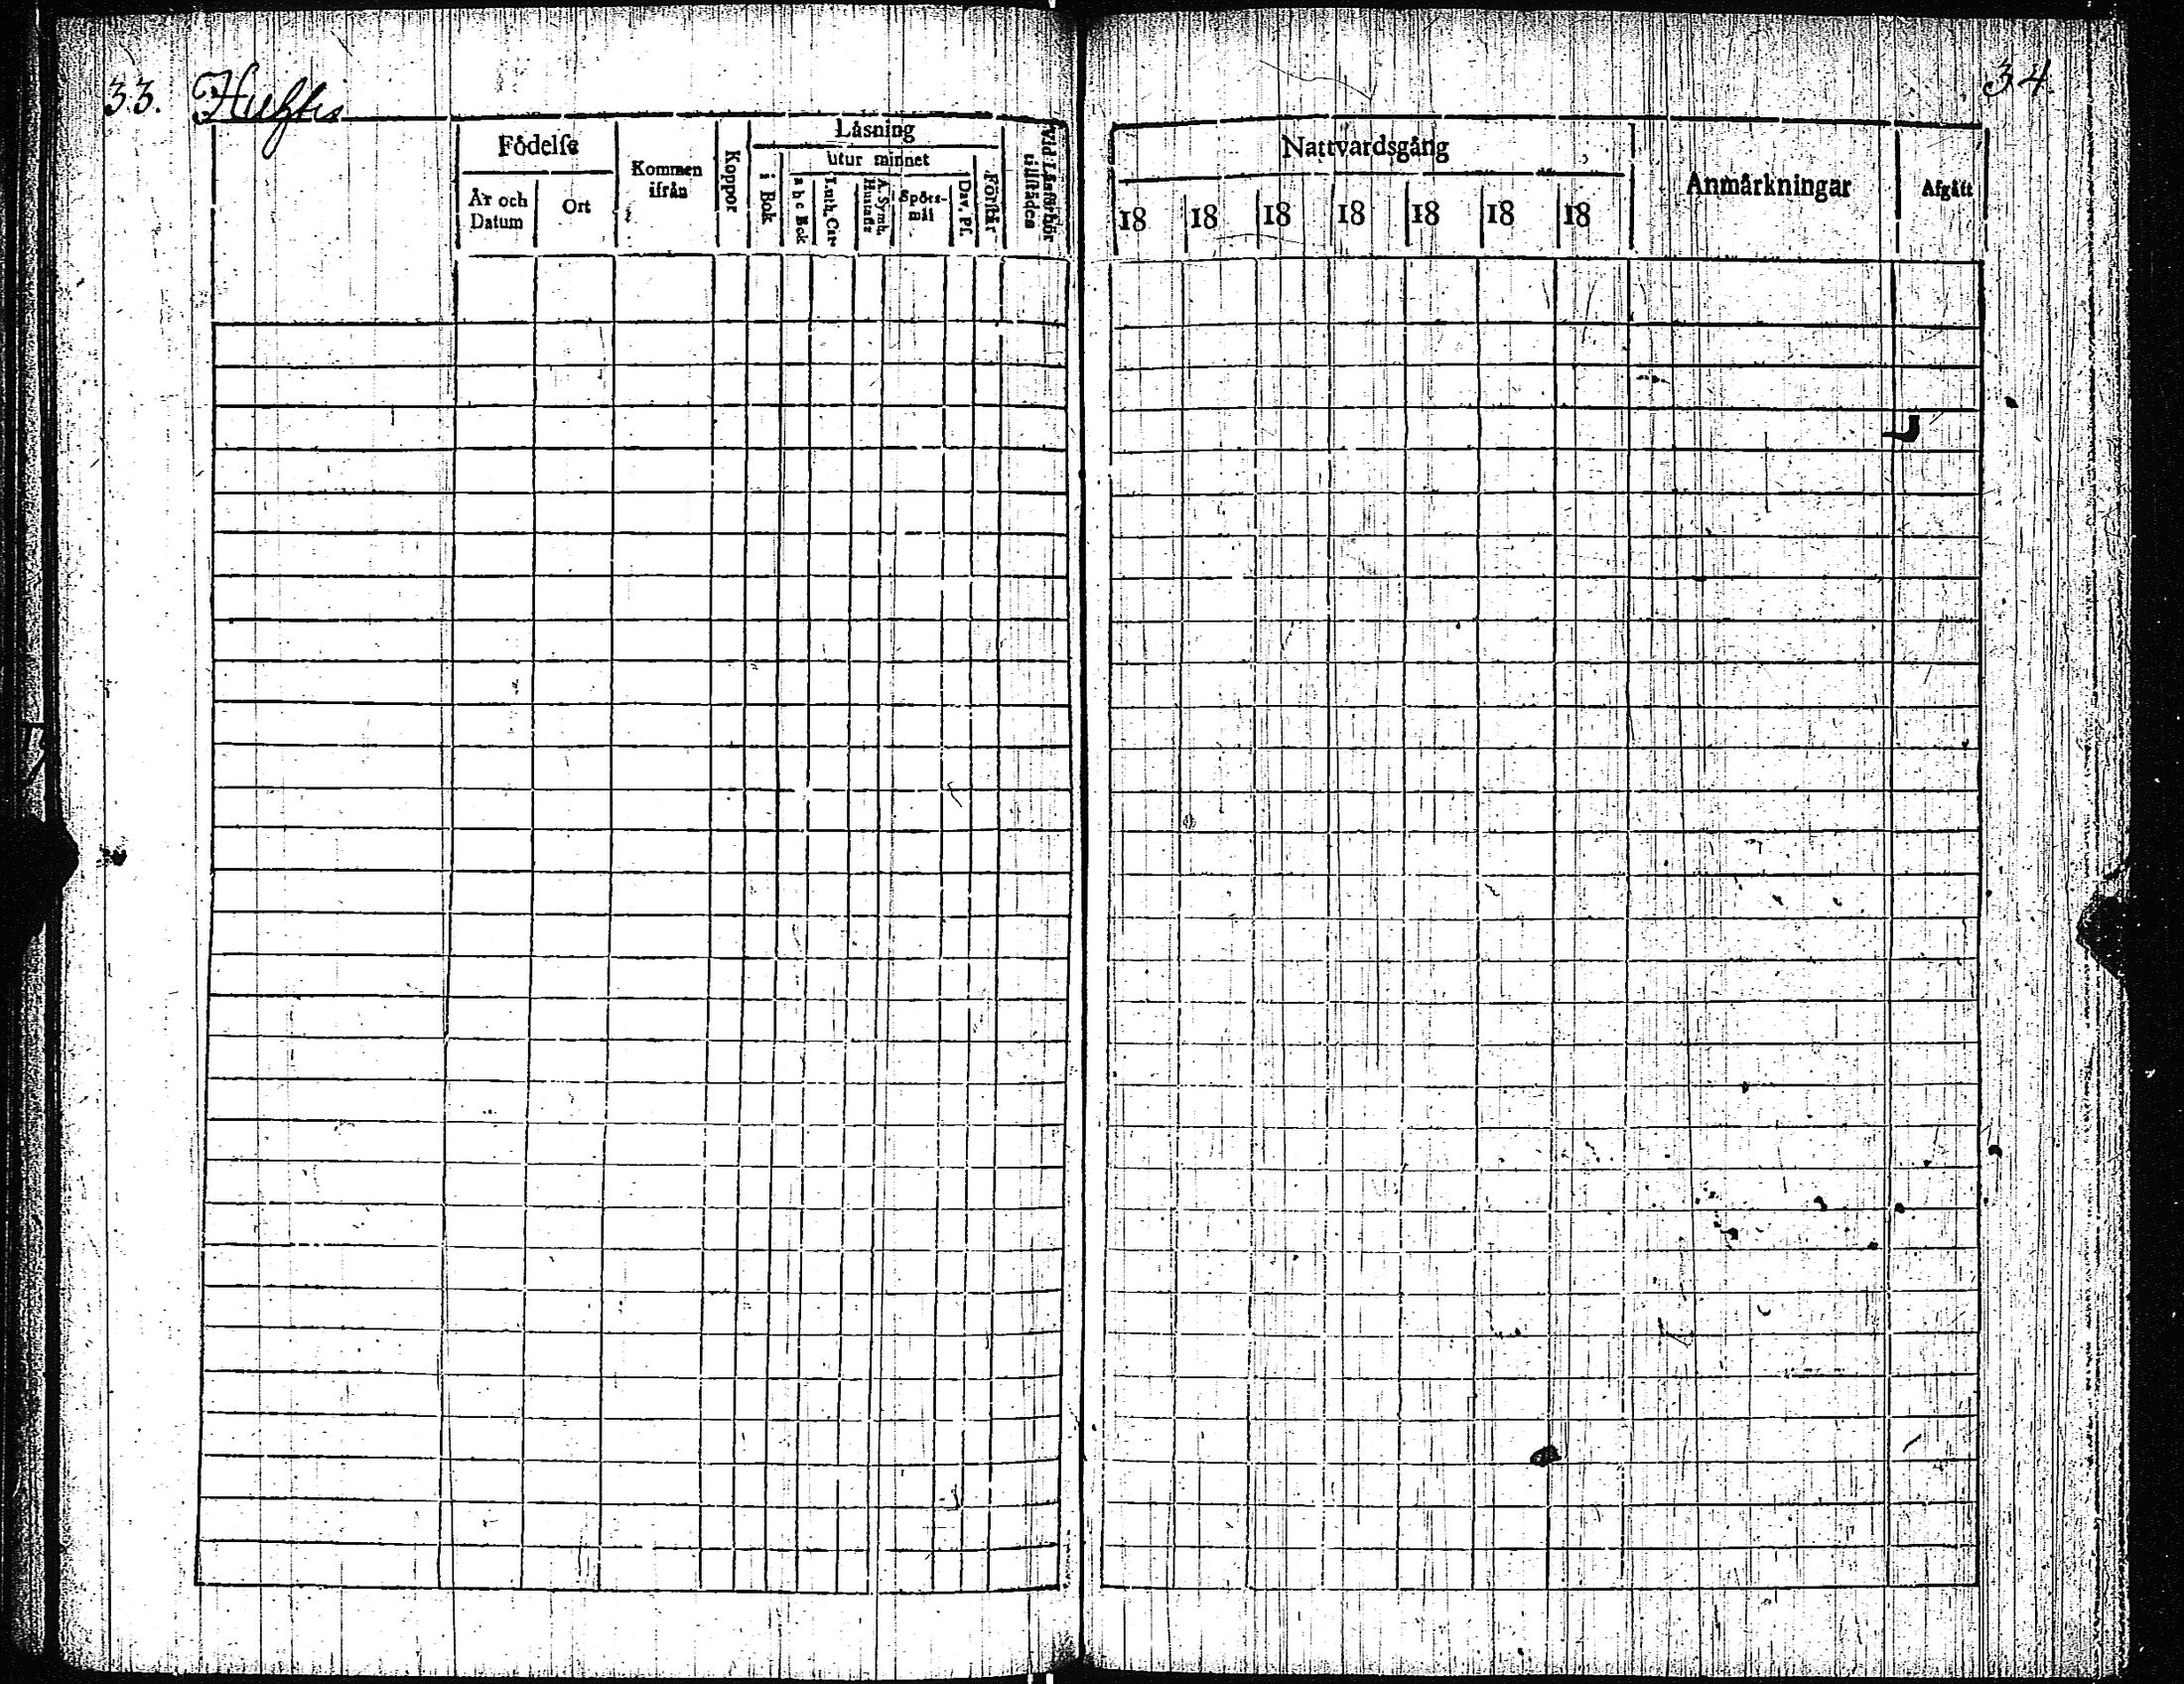 33.
34.
Födelse
År och Datum
Ort
Kommen ifrån
Koppor
Läsning
utur minnet
i Bok
a b c Bok
Luth. Cat.
A. Symb.
Hustafl.
Spörs-mål
Dav. Ps.
Förstår
Vid Läsförhör tillstädes
Nattvardsgång
18 18 18 18 18 18 18
Anmärkningar
Afgått